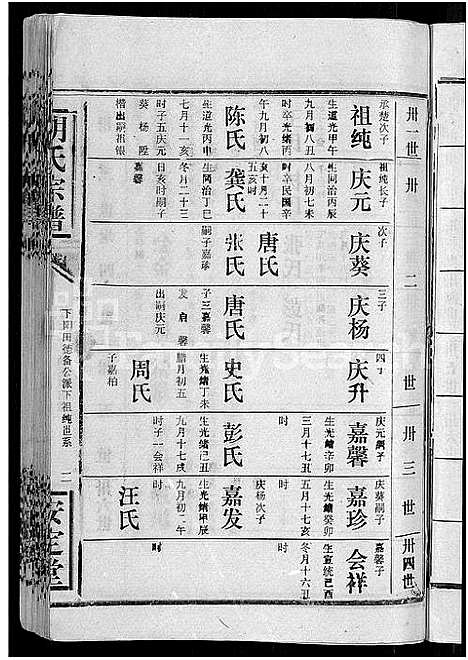 卅一世
卅二世
卅三世
卅四世
承楚次子
祖纯
生道光甲午
九月初八丑
时卒光绪丙
午九月初八
陈氏
生道光丙申
七月十一亥
时子五庆元
葵杨陞
楷出嗣祖银
祖纯长子
庆元
生同治丙辰
八月初七亥
时卒民国辛
亥十月二十
五亥时
龚氏
生同治丁巳
冬月二十三
日亥时嗣子
嘉馨
次子
庆葵
唐氏
张氏
嗣子嘉珍
三子
庆杨
唐氏
子三嘉馨
发启馨
出嗣庆元
四子
庆升
史氏
生光绪丁未
腊月初五
周氏
子嘉柏
庆元嗣子
嘉馨
生光绪辛卯
三月十七戌
时
彭氏
生光绪己丑
九月十七戌
时子一会祥
庆葵嗣子
嘉珍
生光绪癸卯
五月十七亥
时
庆杨次子
嘉发
生光绪甲辰
九月初二午
时
汪氏
嘉馨子
会祥
生宣统己酉
冬月十六丑
时
胡氏宗谱
下畈田德备公派下祖纯世系
二
安定堂